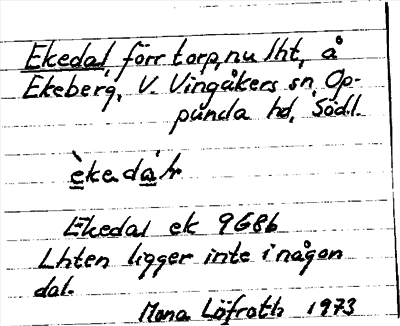 Ekedal, förr torp, nu lht, å
Ekeberg, V. Vingåkers sn, Op-
punda hd, Södl.
èkedá'l
Ekedal ek 9G8b
Lhten ligger inte i någon
dal.
Mona Löfroth 1973